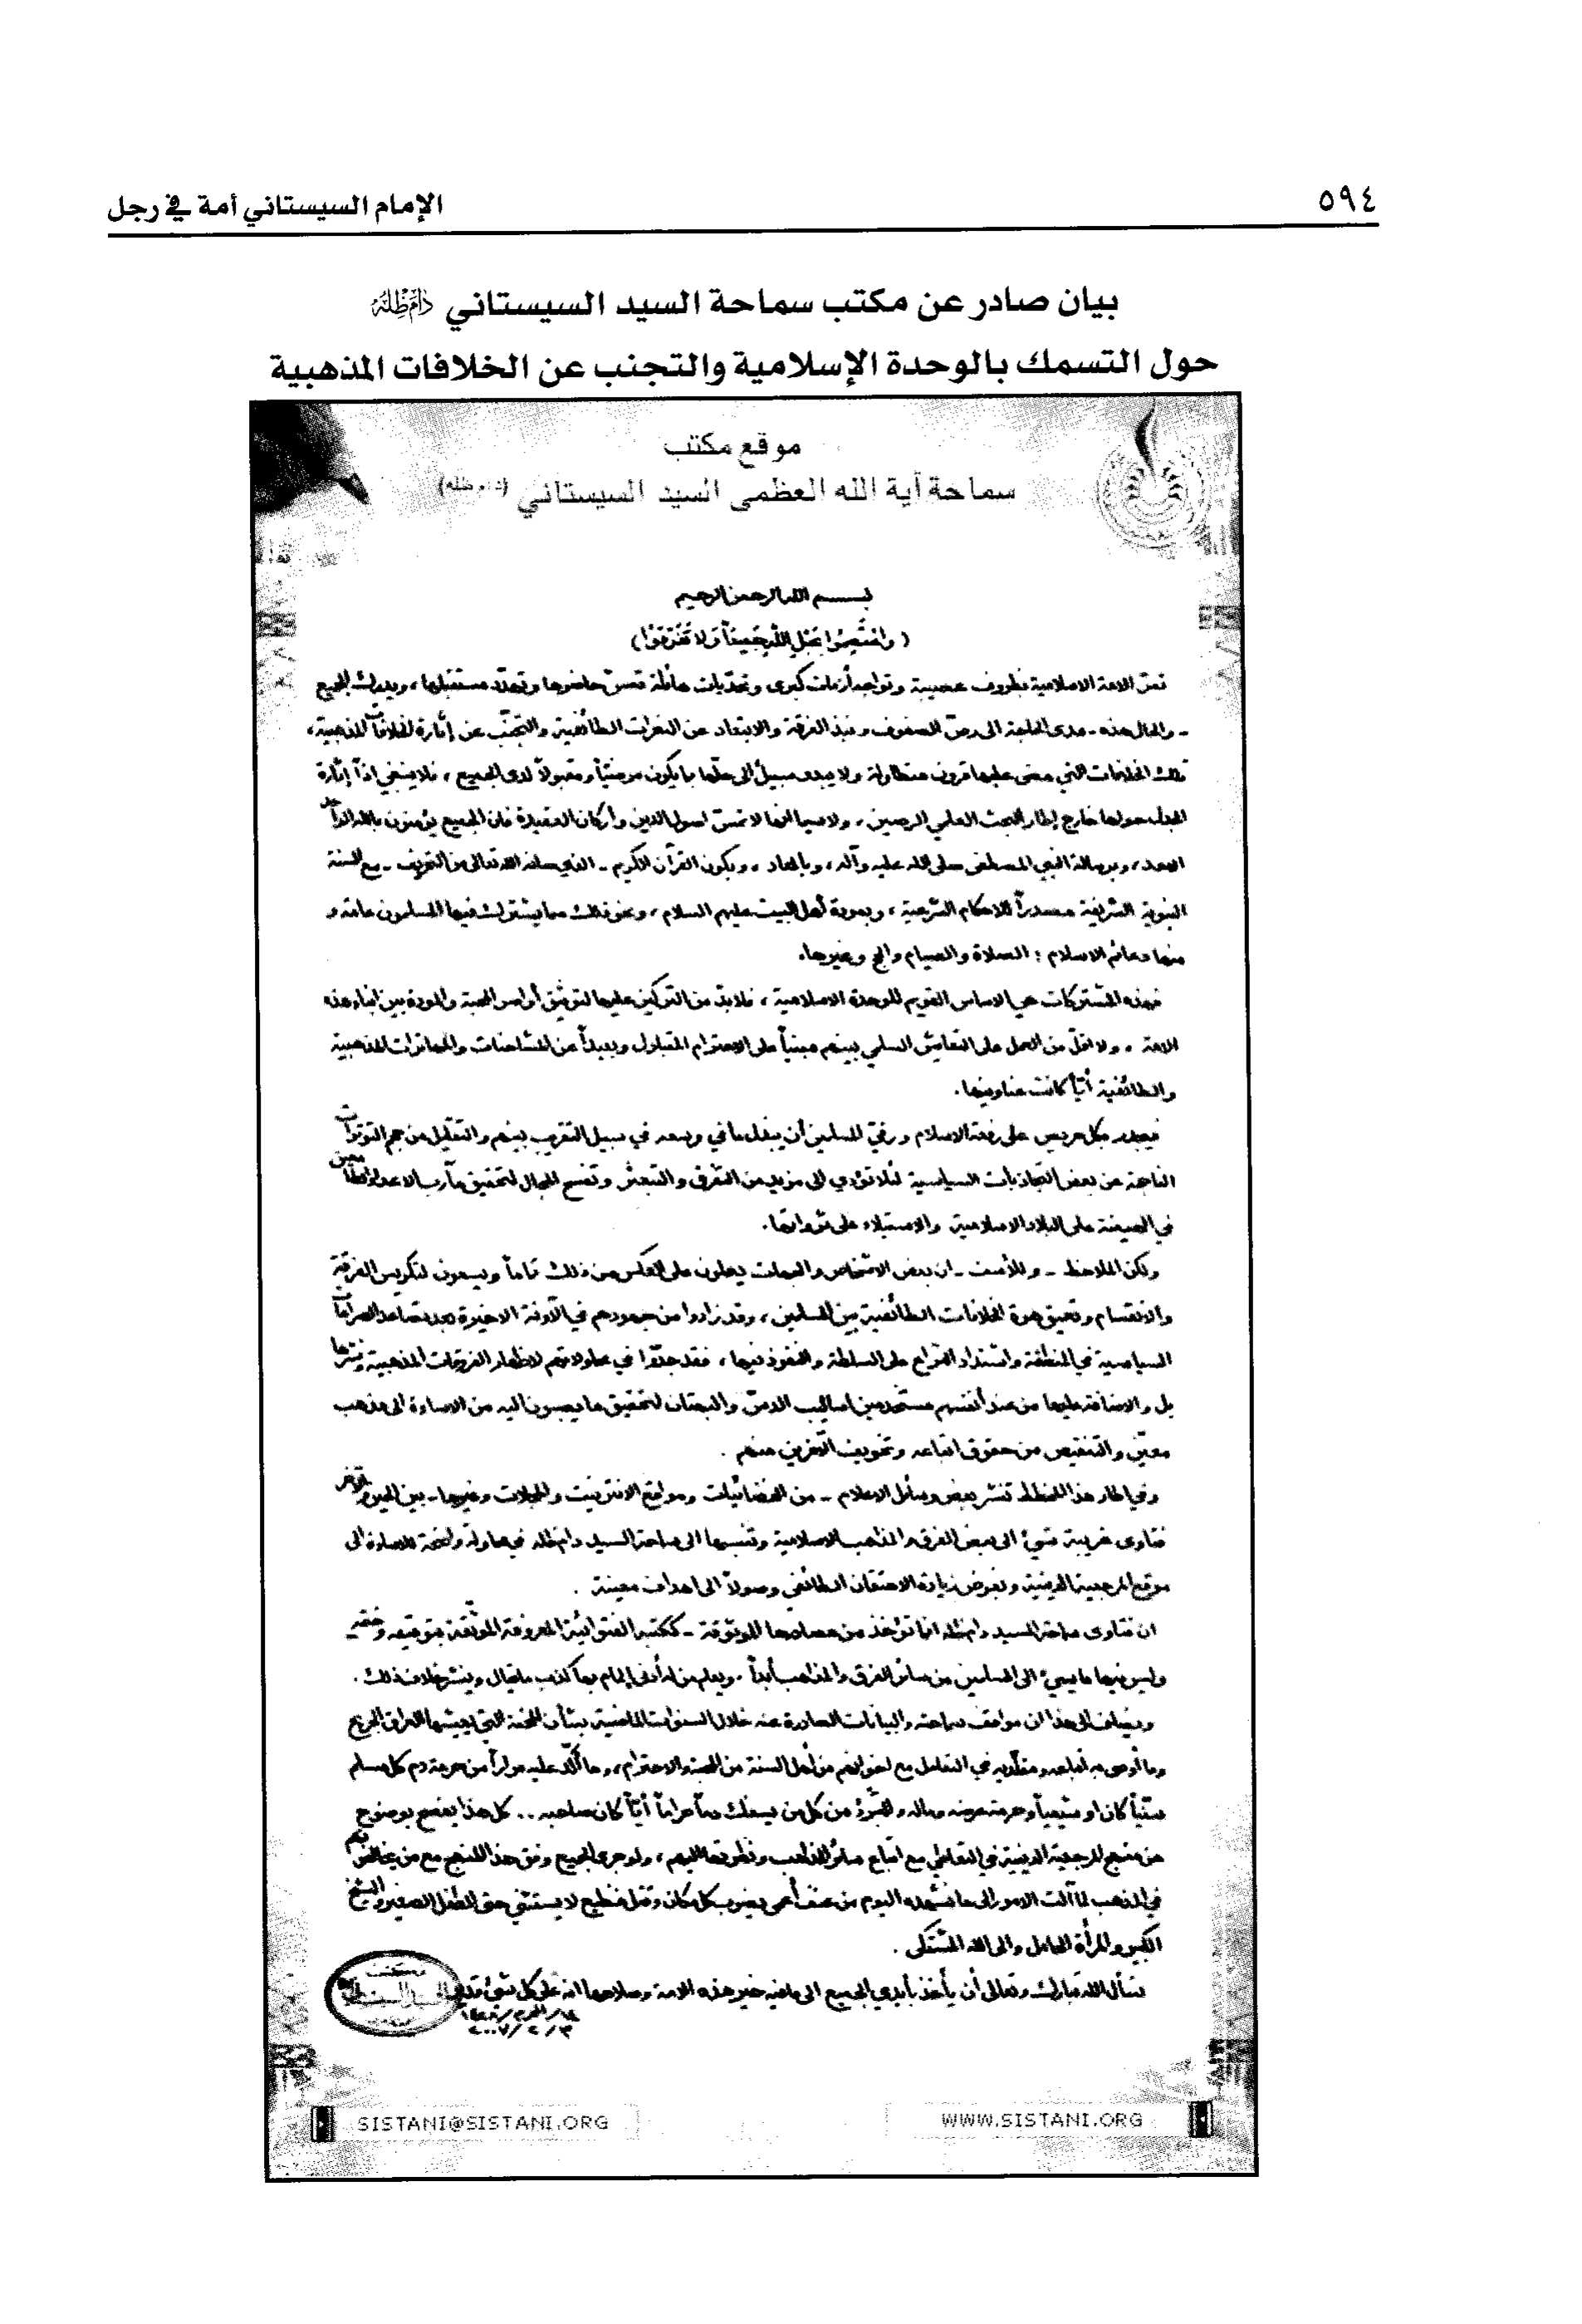 الإمام السيستاني أمة في رجل
٥٩٤
بيان صادر عن مكتب سماحة السيد السيستاني دام ظله
حول التسمك بالوحدة الإسلامية والتجنب عن الخلافات المذهبية
موقع مكتب
سماحة آية الله العظمى السيد السيستاني (دام ظله)
بسم الله الرحمن الرحيم
(واعتصموا بحبل الله جميعاً ولا تفرقوا)
تمرّ الامة الاسلامية بظروف عصيبة وتواجه أزمات كبرى وتحدّيات هائلة تمسّ حاضرها وتهدّد مستقبلها، ويدرك الجميع
- والحال هذه - مدى الحاجة الى رصّ الصفوف ونبذ الفرقة والابتعاد عن النعرات الطائفية والتجنّب عن إثارة الخلافات المذهبية،
تلك الخلافات التي مضى عليها قرون متطاولة ولا يبدو سبيل الى حلّها بما يكون مرضيّاً ومقبولاً لدى الجميع، فلا ينبغي اذاً إثارة
الجدل حولها خارج إطار البحث العلمي الرصين، ولا سيما انها لا تمسّ اصول الدين وأركان العقيدة فان الجميع يؤمنون بالله الواحد
الاحد، وبرسالة النبي المصطفى صلى الله عليه وآله، وبالمعاد، وبكون القرآن الكريم - الذي صانه الله تعالى من التحريف - مع السنة
النبوية الشريفة مصدراً للاحكام الشرعية، وبمودة أهل البيت عليهم السلام، ونحو ذلك مما يشترك فيها المسلمون عامة و
منها دعائم الاسلام: الصلاة والصيام والحج وغيرها.
فهذه المشتركات هي الاساس القويم للوحدة الاسلامية، فلابدّ من التركيز عليها لتوثيق أواصر المحبة والمودة بين ابناء هذه
الامة، ولا اقلّ من العمل على التعايش السلمي بينهم مبنياً على الاحترام المتبادل وبعيداً عن المشاحنات والمهاترات المذهبية
والطائفية أيّاً كانت عناوينها.
فيجدر بكل حريص على رفعة الاسلام ورقيّ المسلمين أن يبذل ما في وسعه في سبيل التقريب بينهم والتقليل من حجم التوترات
الناجمة عن بعض التجاذبات السياسية لئلا تؤدي الى مزيد من التفرق والتبعثر وتفسح المجال لتحقيق مآرب الاعداء الطامعين
في الهيمنة على البلاد الاسلامية والاستيلاء على ثرواتها.
ولكن الملاحظ - وللأسف - ان بعض الاشخاص والجهات يعملون على العكس من ذلك تماماً ويسعون لتكريس الفرقة
والانقسام وتعميق هوة الخلافات الطائفية بين المسلمين، وقد زادوا من جهودهم في الآونة الاخيرة بعد تصاعد الصراعات
السياسية في المنطقة واشتداد النزاع على السلطة والنفوذ فيها، فقد جدّوا في محاولاتهم لاظهار الفروقات المذهبية ونشرها
بل والاضافة عليها من عند أنفسهم مستخدمين اساليب الدسّ والبهتان لتحقيق ما يصبون اليه من الاساءة الى مذهب
معيّن والتنقيص من حقوق اتباعه وتخويف الآخرين منهم.
وفي اطار هذا المخطط تنشر بعض وسائل الاعلام - من الفضائيات ومواقع الانترنيت والمجلات وغيرها - بين الحين والآخر
فتاوى غريبة تسيئ الى بعض الفرق والمذاهب الاسلامية وتنسبها الى سماحة السيد دام ظله في محاولة واضحة للاساءة الى
موقع المرجعية الدينية وبغرض زيادة الاحتقان الطائفي وصولاً الى اهداف معينة.
ان فتاوى سماحة السيد دام ظله انما تؤخذ من مصادرها الموثوقة - ككتبه الفتوائية المعروفة الموثّقة بتوقيعه وختمه -
وليس فيها ما يسيئ الى المسلمين من سائر الفرق والمذاهب أبداً، ويعلم من له أدنى إلمام بها كذب ما يقال وينشر خلاف ذلك.
ويضاف الى هذا ان مواقف سماحته والبيانات الصادرة عنه خلال السنوات الماضية بشأن المحنة التي يعيشها العراق الجريح
وما أوصى به اتباعه ومقلّديه في التعامل مع اخوانهم من أهل السنة من المحبة والاحترام، وما أكّد عليه مراراً من حرمة دم كل مسلم
سنّياً كان او شيعياً وحرمة عرضه وماله والتبرّؤ من كل من يسفك دماً حراماً أيّاً كان صاحبه .. كل هذا يفصح بوضوح
عن منهج المرجعية الدينية في التعاطي مع اتباع سائر المذاهب ونظرتها اليهم، ولو جرى الجميع وفق هذا المنهج مع من يخالفونهم
في المذهب لما آلت الامور الى ما نشهده اليوم من عنف أعمى يضرب كل مكان وقتل فظيع لا يستثني حتى الطفل الصغير والشيخ
الكبير والمرأة الحامل والى الله المشتكى.
نسأل الله تبارك وتعالى أن يأخذ بأيدي الجميع الى ما فيه خير هذه الامة وصلاحها انه على كل شيئ قدير
١٤/ المحرم/ ١٤٢٨
٣ / ٢ / ٢٠٠٧
SISTANI@SISTANI.ORG
WWW.SISTANI.ORG